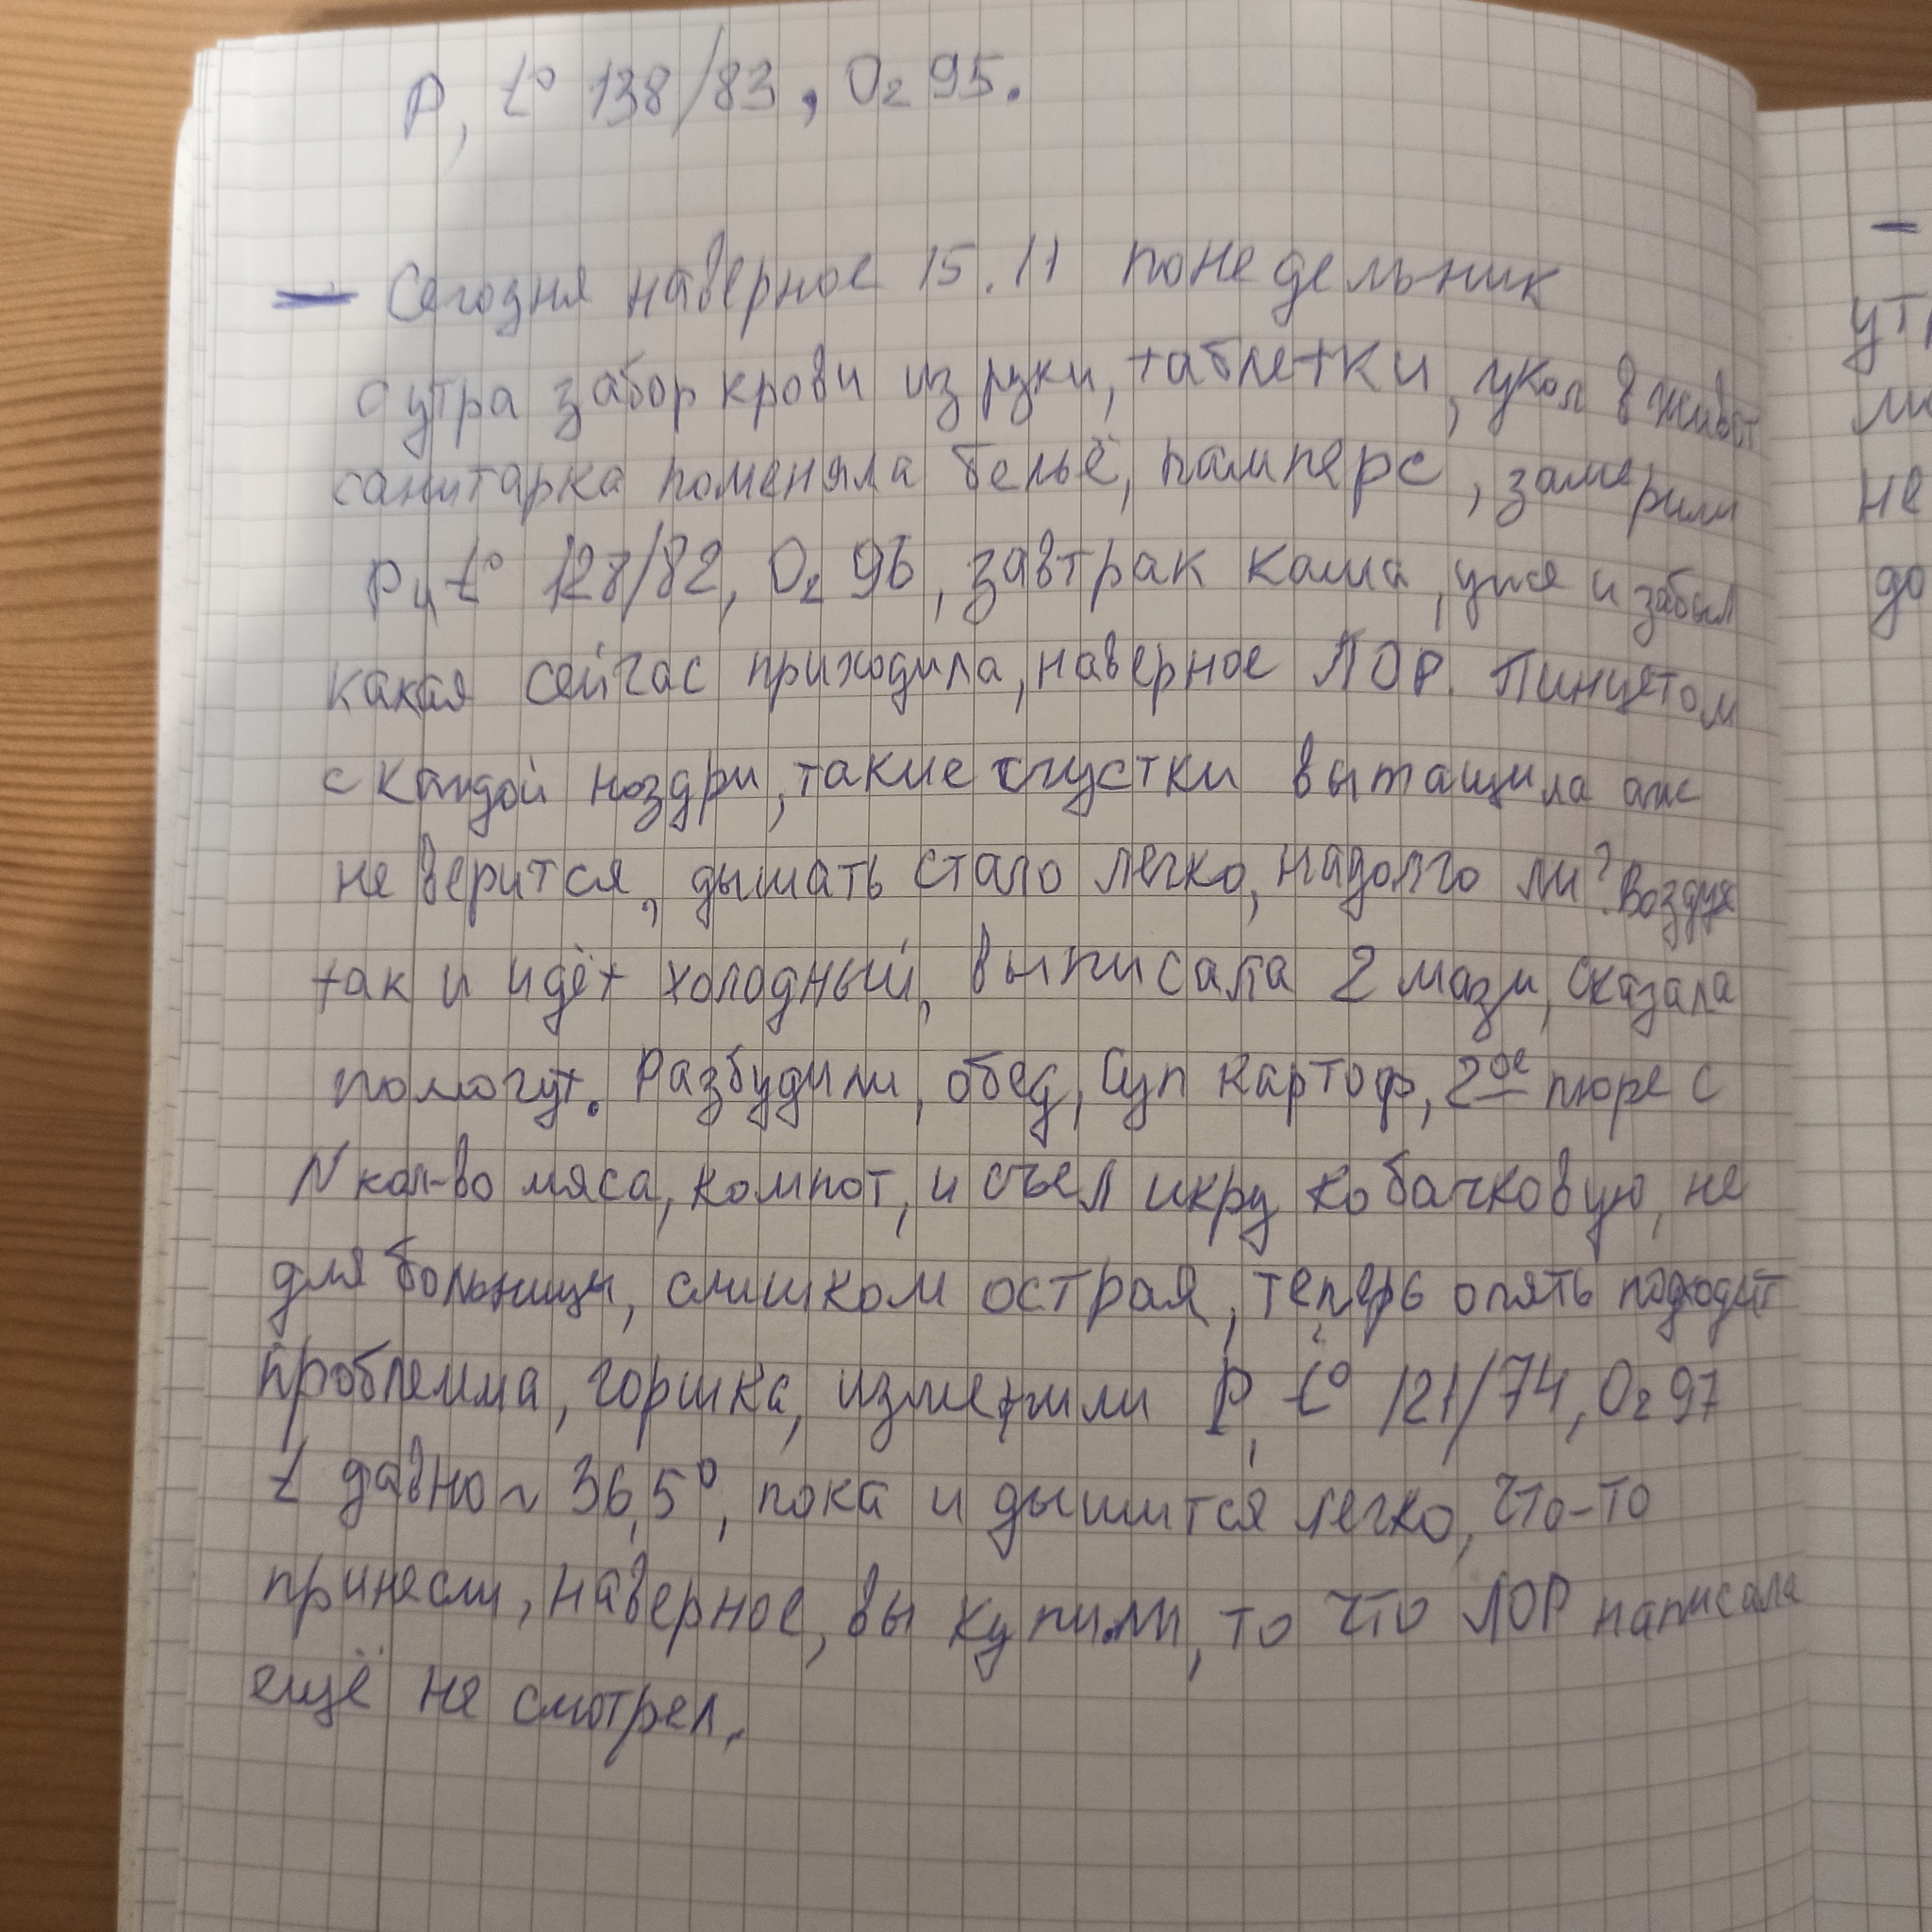 P, t° 138/83, O₂ 95.
— Сегодня наверное 15.11 понедельник
с утра забор крови из руки, таблетки, укол в живот
санитарка поменяла бельё, памперс, замерили
P и t° 128/82, O₂ 96, завтрак каша, уже и забыл
какая сейчас приходила, наверное ЛОР. Пинцетом
с каждой ноздри, такие сгустки вытащила аж
не верится, дышать стало легко, надолго ли? Воздух
так и идёт холодный, выписала 2 мази, сказала
помогут. Разбудили, обед, Суп картоф, 2ое пюре с
N кол-во мяса, компот, и съел икру кобачковую, не
для больницы, слишком острая, теперь опять подходит
проблемма, горшка, измерили P, t° 121/74, O₂ 97
t давно ~ 36,5°, пока и дышится легко, что-то
принесли, наверное, вы купили, то что ЛОР написала
ещё не смотрел.
—
ут
не
до